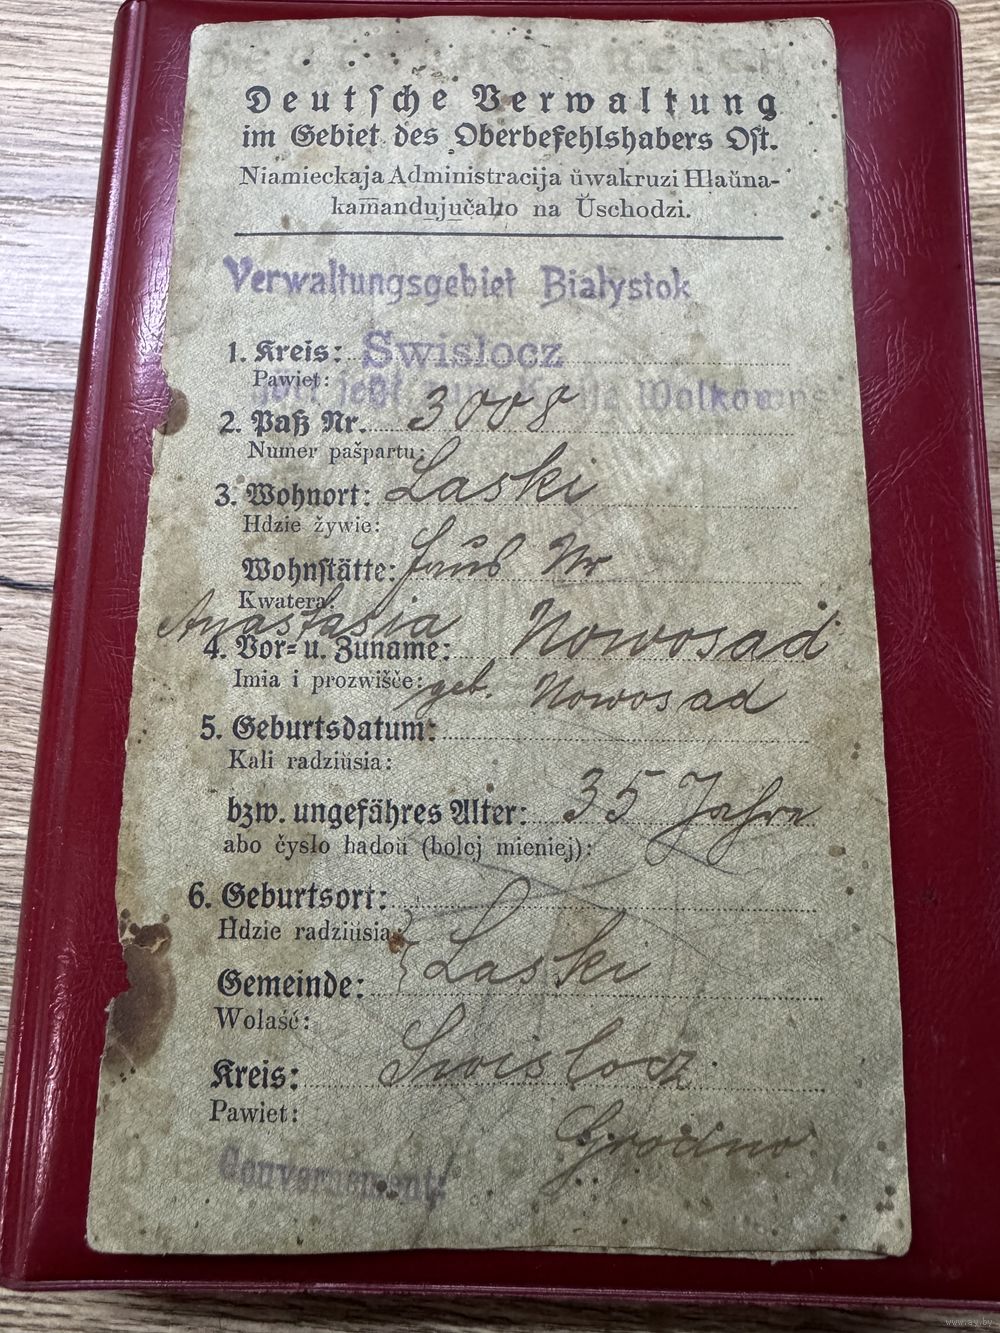 Deutsche Verwaltung
im Gebiet des Oberbefehlshabers Ost.
Niamieckaja Administracija ŭwakruzi Hłaŭna-
kamandujučaho na Ŭschodzi.
Verwaltungsgebiet Białystok
1. Kreis: Swislocz
Pawiet: jetzt zum Kreise Wolkowysk
2. Paß Nr. 3008
Numer pašpartu:
3. Wohnort: Laski
Hdzie žywie:
Wohnstätte: Haus Nr
Kwatera:
Anastasia Nowosad
4. Vor- u. Zuname:
Imia i prozwišče: geb. Nowosad
5. Geburtsdatum:
Kali radziŭsia:
bzw. ungefähres Alter: 35 Jahre
abo čysło hadoŭ (bolej mieniej):
6. Geburtsort:
Hdzie radziŭsia:
Gemeinde: Laski
Wołaść:
Kreis: Swislocz
Pawiet:
Grodno
Gouvernement:
www.ay.by